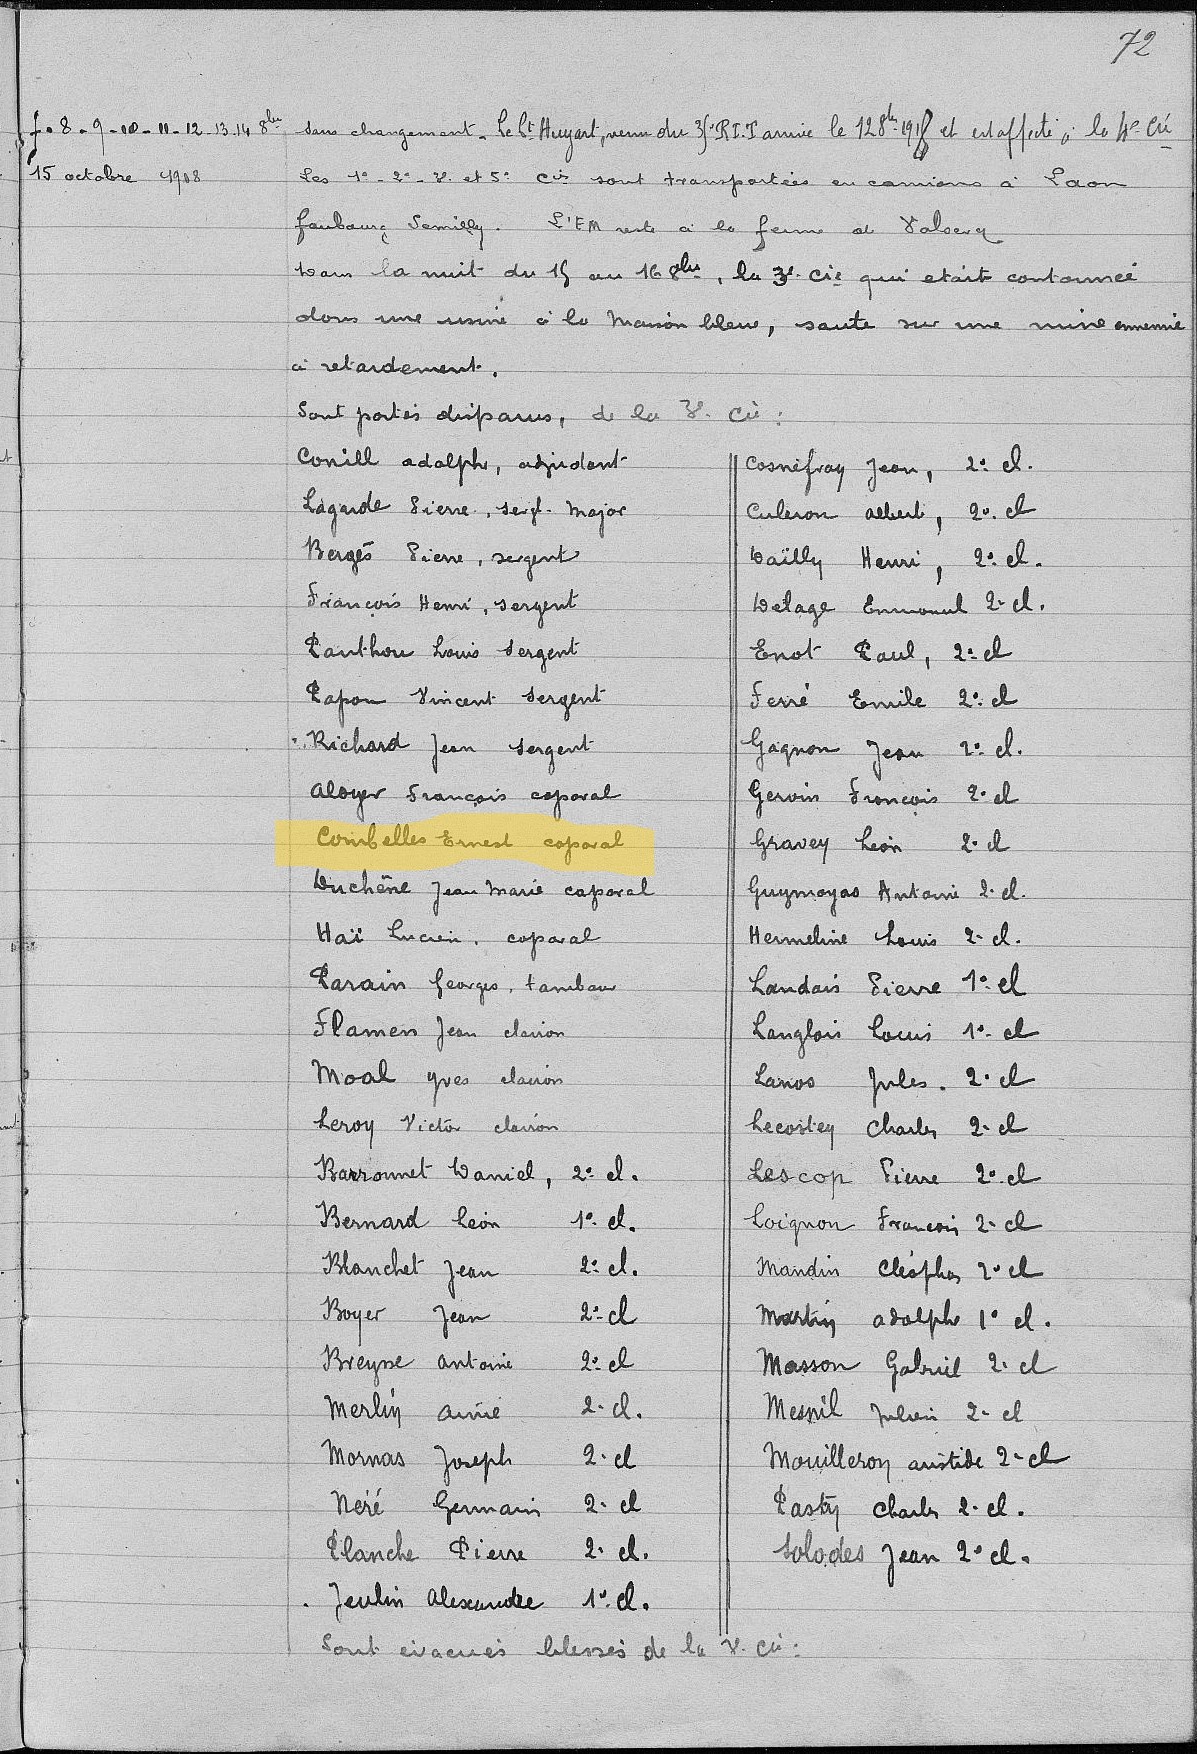 72
7-8-9-10-11-12-13-14 8bre sans changement. Le Lt Huyart, venu du 35e R.I.T arrive le 12 8bre 1918 et est affecté à la 4e Cie
15 octobre 1918 Les 1e-2e-3e et 5e Cies sont transportées en camions à Laon
faubourg Semilly. L'EM reste à la ferme de Valsery
Dans la nuit du 15 au 16 8bre, la 3e Cie qui était cantonnée
dans une usine à la Maison bleue, saute sur une mine ennemie
à retardement.
Sont portés disparus, de la 3e Cie :
Conill adolphe, adjudant
Lagarde Pierre, sergt. Major
Bergès Pierre, sergent
François Henri, sergent
Panthou Louis sergent
Papon Vincent sergent
Richard Jean sergent
Aloyer François caporal
Combelles Ernest caporal
Duchêne Jean Marie caporal
Haï Lucien, caporal
Parain Georges, tambour
Flamen Jean clairon
Moal Yves clairon
Leroy Victor clairon
Barronnet Daniel, 2e cl.
Bernard Léon 1e cl.
Blanchet Jean 2e cl.
Boyer Jean 2e cl
Breysse Antoine 2e cl
Merlin Aimé 2e cl.
Mornas Joseph 2e cl
Néré Germain 2e cl
Planche Pierre 2e cl.
Jeulin Alexandre 1e cl.
Cosnéfroy Jean, 2e cl.
Culeron Albert, 2e cl
Dailly Henri, 2e cl.
Delage Emmanuel 2e cl.
Enot Paul, 2e cl
Ferré Emile 2e cl
Gagnon Jean 2e cl.
Gervin François 2e cl
Gravey Léon 2e cl
Guymoyas Antoine 2e cl.
Hermeline Louis 2e cl.
Landais Pierre 1e cl
Langlois Louis 1e cl
Lanos Jules. 2e cl
Lecostey Charles 2e cl
Lescop Pierre 2e cl
Loignon François 2e cl
Mandin Cléophas 2e cl
Martin adolphe 1e cl.
Masson Gabriel 2e cl
Mesnil Julien 2e cl
Mouilleron Aristide 2e cl
Pasty Charles 2e cl.
Solodes Jean 2e cl.
Sont évacués blessés de la 3e Cie :